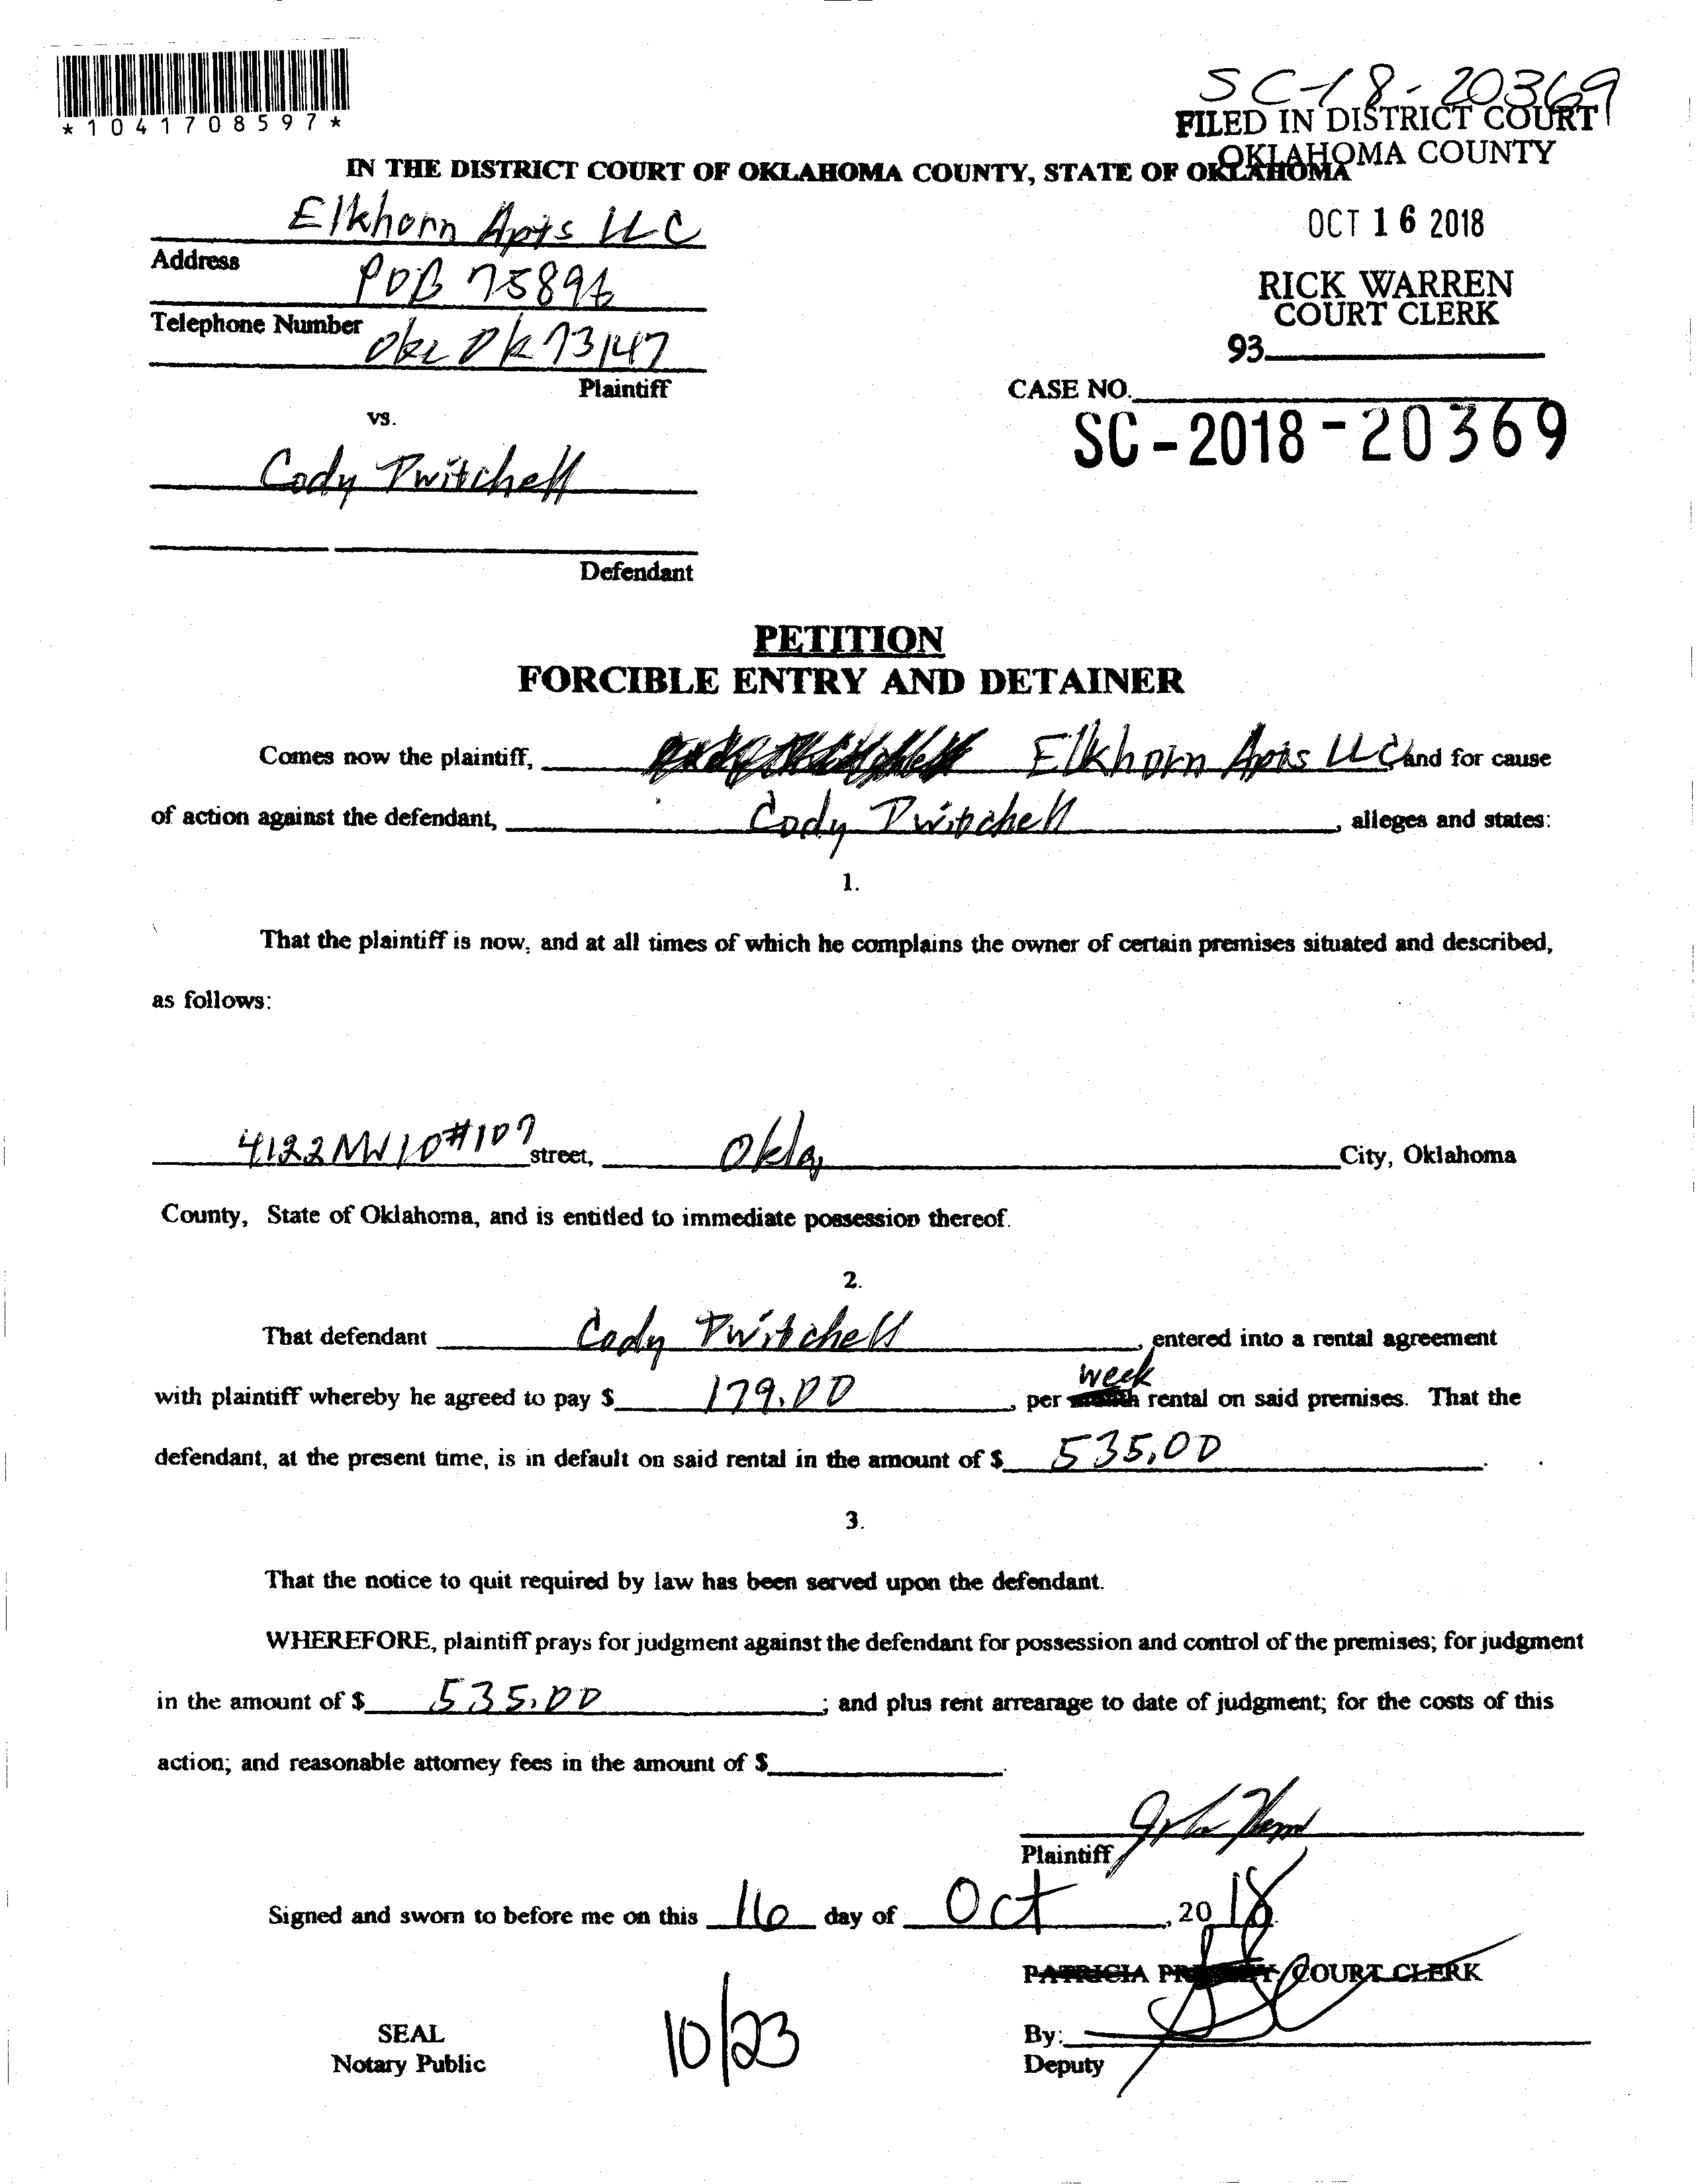 SC-18-20369
*1041708597*
FILED IN DISTRICT COURT
OKLAHOMA COUNTY
IN THE DISTRICT COURT OF OKLAHOMA COUNTY, STATE OF OKLAHOMA
OCT 16 2018
RICK WARREN
COURT CLERK
93
Elkhorn Apts LLC
Address
POB 75896
Telephone Number
Okc Ok 73147
Plaintiff
CASE NO.
SC-2018-20369
vs.
Cody Twitchell
Defendant
PETITION
FORCIBLE ENTRY AND DETAINER
Comes now the plaintiff, Elkhorn Apts LLC and for cause
of action against the defendant, Cody Twitchell, alleges and states:
1.
That the plaintiff is now, and at all times of which he complains the owner of certain premises situated and described,
as follows:
4122 NW 10 #107 street, Okla, City, Oklahoma
County, State of Oklahoma, and is entitled to immediate possession thereof.
2.
That defendant Cody Twitchell, entered into a rental agreement
with plaintiff whereby he agreed to pay $ 179.00, per week rental on said premises. That the
defendant, at the present time, is in default on said rental in the amount of $ 535.00.
3.
That the notice to quit required by law has been served upon the defendant.
WHEREFORE, plaintiff prays for judgment against the defendant for possession and control of the premises; for judgment
in the amount of $ 535.00; and plus rent arrearage to date of judgment; for the costs of this
action; and reasonable attorney fees in the amount of $.
Plaintiff
Signed and sworn to before me on this 16 day of Oct, 2018.
PATRICIA COURT CLERK
SEAL
Notary Public
10/23
By:
Deputy